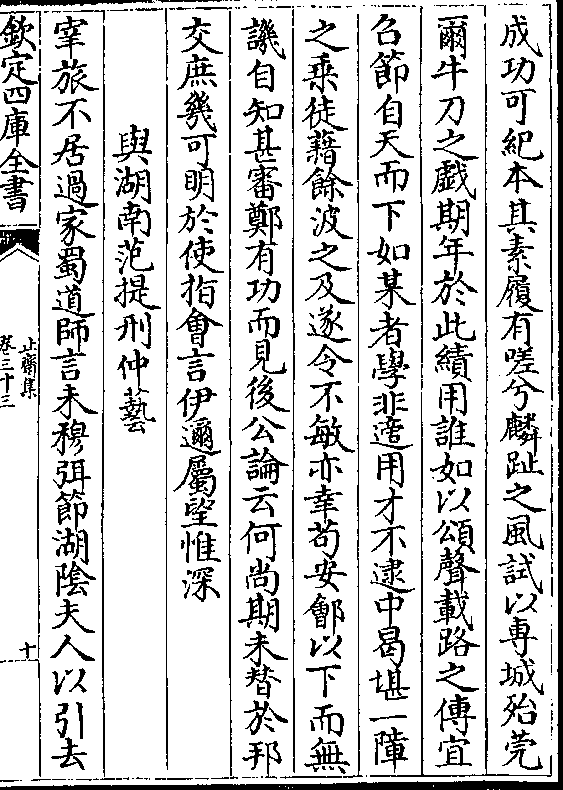 成功可紀本其素履有嗟兮麟趾之風試以専城殆莞
爾牛刀之戯期年於此績用誰如以頌聲載路之傳宜
召節自天而下如某者學非適用才不逮中曷堪一障
之乗徒藉餘波之及遂令不敏亦幸苟安鄶以下而無
譏自知甚審鄭有功而見後公論云何尚期未替於邦
交庶幾可明於使指會言伊邇屬望惟深
與湖南范提刑仲藝
宰旅不居過家蜀道師言未穆弭節湖陰夫人以引去
欽定四庫全書
止齋集
卷三十三
十